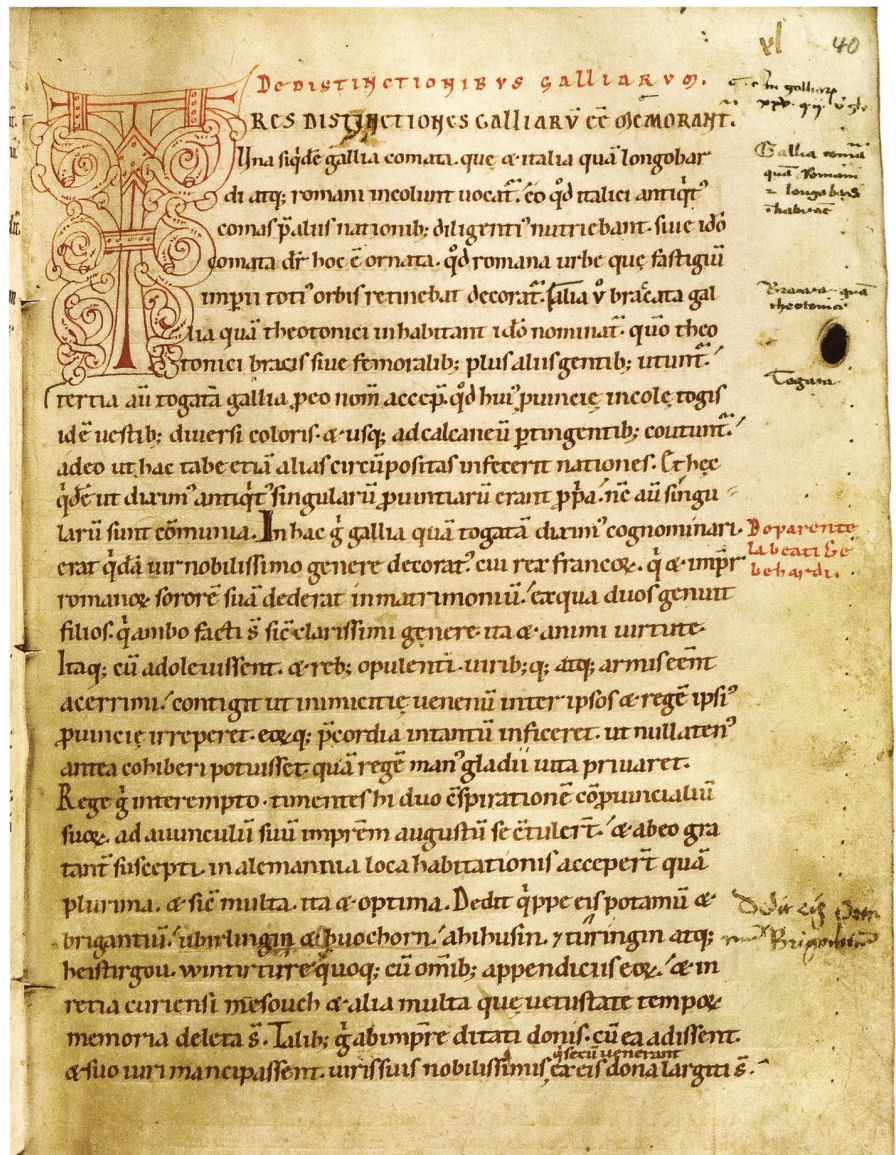 vl 40
De distinctionibus galliarum.
Tres distinctiones galliarū ēē memorant̃.
Una siqdē gallia comata. quę & italia quā longobar
di atq; romani incolunt uocat̃. eo qd italici antiqt᷒
comas p̄ aliis nationib; diligenti᷒ nutriebant. siue idō
comata dr̄ hoc ē ornata. qd romana urbe que fastigiū
imperii toti᷒ orbis retinebat decorat̃. Alia v̊ bracata gal
lia quā theotonici inhabitant idō nominat̃. quō theo
tonici bracis siue femoralib; plus aliis gentib; utunt̃.
tertia aū togatā gallia. ꝑeo nom̄ accep̄. qd hui᷒ ꝓuincię incolę togis
idē uestib; diuersi coloris. & usq; ad calcaneū ꝑtingentib; coutunt̃.
adeo ut hac tabe etiā alias circūpositas infecerit nationes. Et hęc
qdē ut diximꝰ antiqt᷒ singularū ꝓuintiarū erant ꝓpā. nc̄ aū singu
larū sunt cōmunia. In hac g̊ gallia quā togatā diximꝰ cognominari.
De parente
la beati Ge
behardi.
erat qdā uir nobilissimo genere decorat᷒. cui rex francoꝝ. q̇ & imp̄r
romanoꝝ sororē suā dederat in matrimoniū. ex qua duos genuit
filios. q̇ ambo facti s̄ sic̄ clarissimi genere. ita & animi uirtute.
Itaq; cū adoleuissent. & reb; opulenti. uirib; q; atq; armis eēnt
acerrimi. contigit ut inimicitię uenenū inter ipsos & regē ipsi᷒
ꝓuincię irreperet. eoꝝ q; p̄cordia intantū inficeret. ut nullaten᷒
antea cohiberi potuisset. quā regē man᷒ gladii uita priuaret.
Rege g̊ interempto. timentes hi duo c̄spirationē cōꝓuincialiū
suoꝝ. ad auunculū suū imp̄rēm augustū se c̄tulert̄. & ab eo gra
tant̄ suscepti. in alemannia loca habitationis accepert̄ quā
plurima. & sic̄ multa. ita & optima. Dedit q̇ppe eis potamū &
brigantiū. ubirlingin & buochorn. ahihusin. ⁊ turingin atq;
heistirgou. wintirture quoq; cū om̄ib; appendiciis eoꝝ. & in
retia curiensi mesouch & alia multa quę uetustate tempoꝝ
memoria deleta s̄. Talib; g̊ ab imp̄re ditati donis. cū ea adissent.
q̇ secū uenerant
& suo iuri mancipassent. uiris suis nobilissimis, ex eis dona largiti s̄.
Gallia comā
quā Romani
⁊ longobardi
īhabitāt
Bracata quā
theotonici
Togata